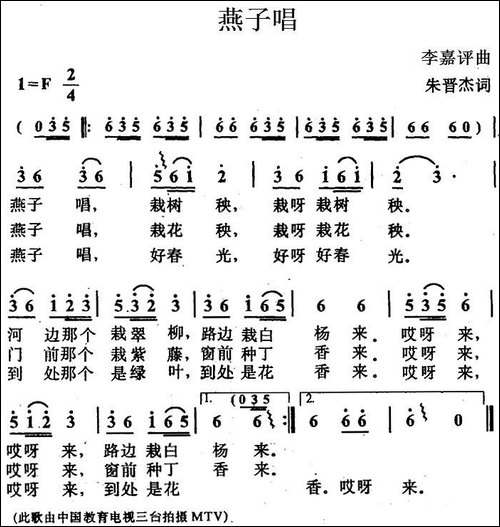 燕子唱
李嘉评曲
1=F 2/4
朱晋杰词
( 0 3 5 ‖: 6 3 5 6 3 5 | 6 6 6 3 5 | 6 3 5 6 3 5 | 6 6 6 0 )
3 6 3 6 | 5 6 1 2 | 3 6 1 6 1 | 2 3 · |
燕子 唱, 栽树 秧, 栽呀 栽树 秧。
燕子 唱, 栽花 秧, 栽呀 栽花 秧。
燕子 唱, 好春 光, 好呀 好春 光。
3 6 1 2 3 | 5 3 2 3 | 3 6 1 6 5 | 6 6 | 5 3 5 6 |
河 边那个 栽翠 柳, 路边 栽白 杨 来。 哎呀 来,
门 前那个 栽紫 藤, 窗前 种丁 香 来。 哎呀 来,
到 处那个 是绿 叶, 到处 是花 香 来。 哎呀 来,
5 1 2 3 | 3 6 1 6 5 | 1. 6 ( 0 3 5 6 :‖ 2. 6 6 6 | 6 0 ‖
哎呀 来, 路边 栽白 杨 来。
哎呀 来, 窗前 种丁 香 来。
哎呀 来, 到处 是花 香。哎呀 来。
(此歌由中国教育电视三台拍摄 MTV)